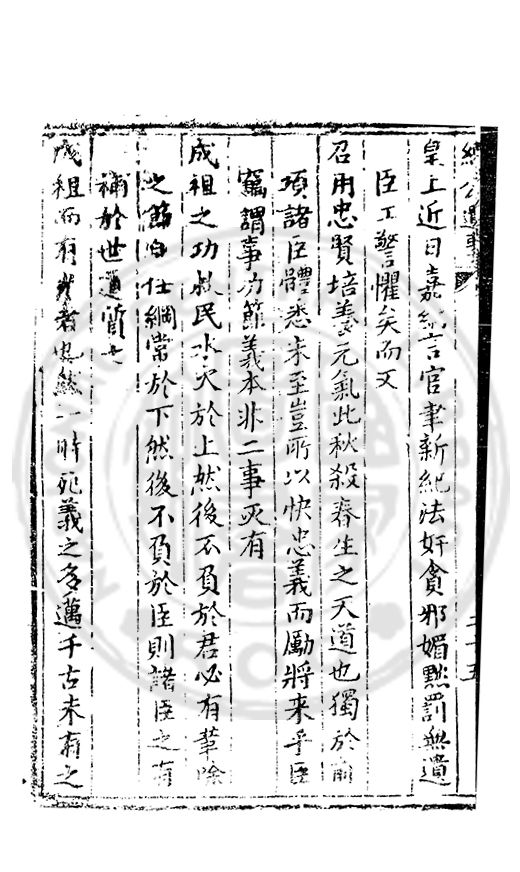 皇上近日嘉納言官聿新紀法奸貪邪媚黜罰無遺
臣工警懼矣而又
召用忠賢培養元氣此秋殺春生之天道也獨於前
項諸臣體悉未至豈所以快忠義而勵將來乎臣
竊謂事功節義本非二事灭有
成祖之功救民水火於上然後不負於君必有革除
之節自任綱常於下然後不負於臣則諸臣之有
補於世道管
成祖而有者也然一時死義之多邁千古未有之
二十五